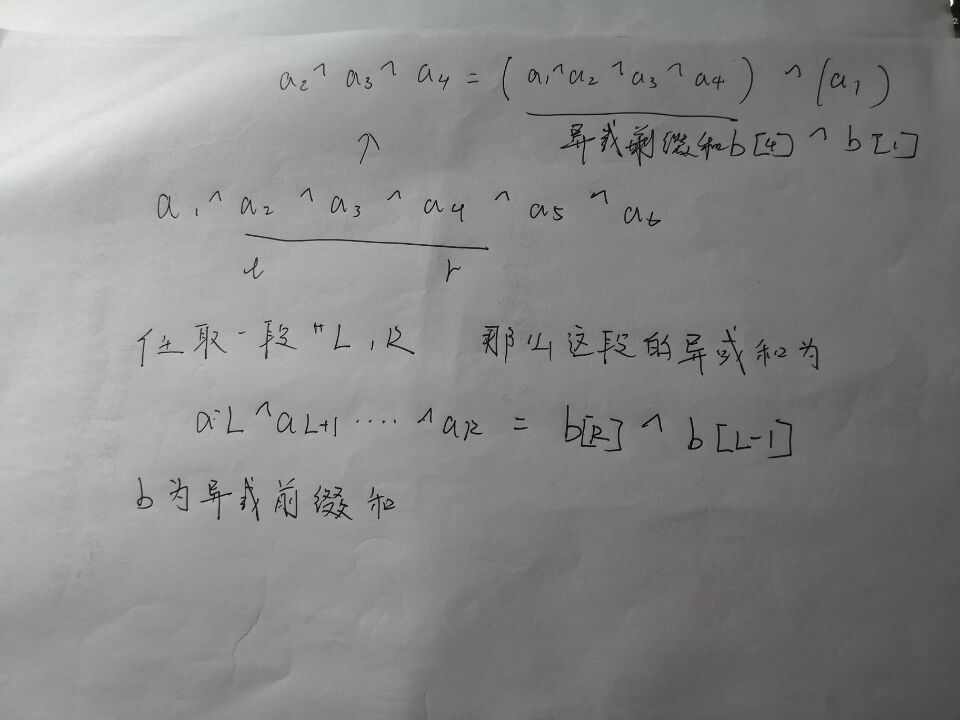 a₂ ^ a₃ ^ a₄ = (a₁^a₂^a₃^a₄) ^ (a₁)
异或前缀和b[4] ^ b[1]
↑
a₁^a₂ ^ a₃ ^ a₄ ^ a₅ ^ a₆
l r
任取一段 L,R 那么这段的异或和为
aL^aL+1 ···· ^aR = b[R] ^ b[L-1]
b为异或前缀和